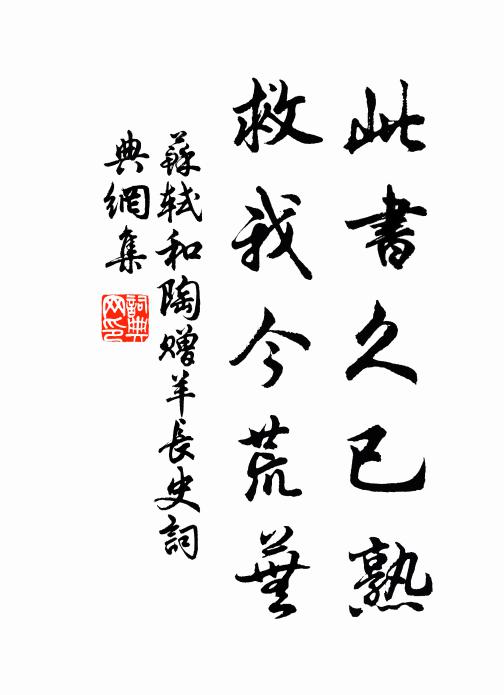 此書久已熟
救我今荒蕪
蘇軾和陶贈羊長史詞
典網集
詞典网印